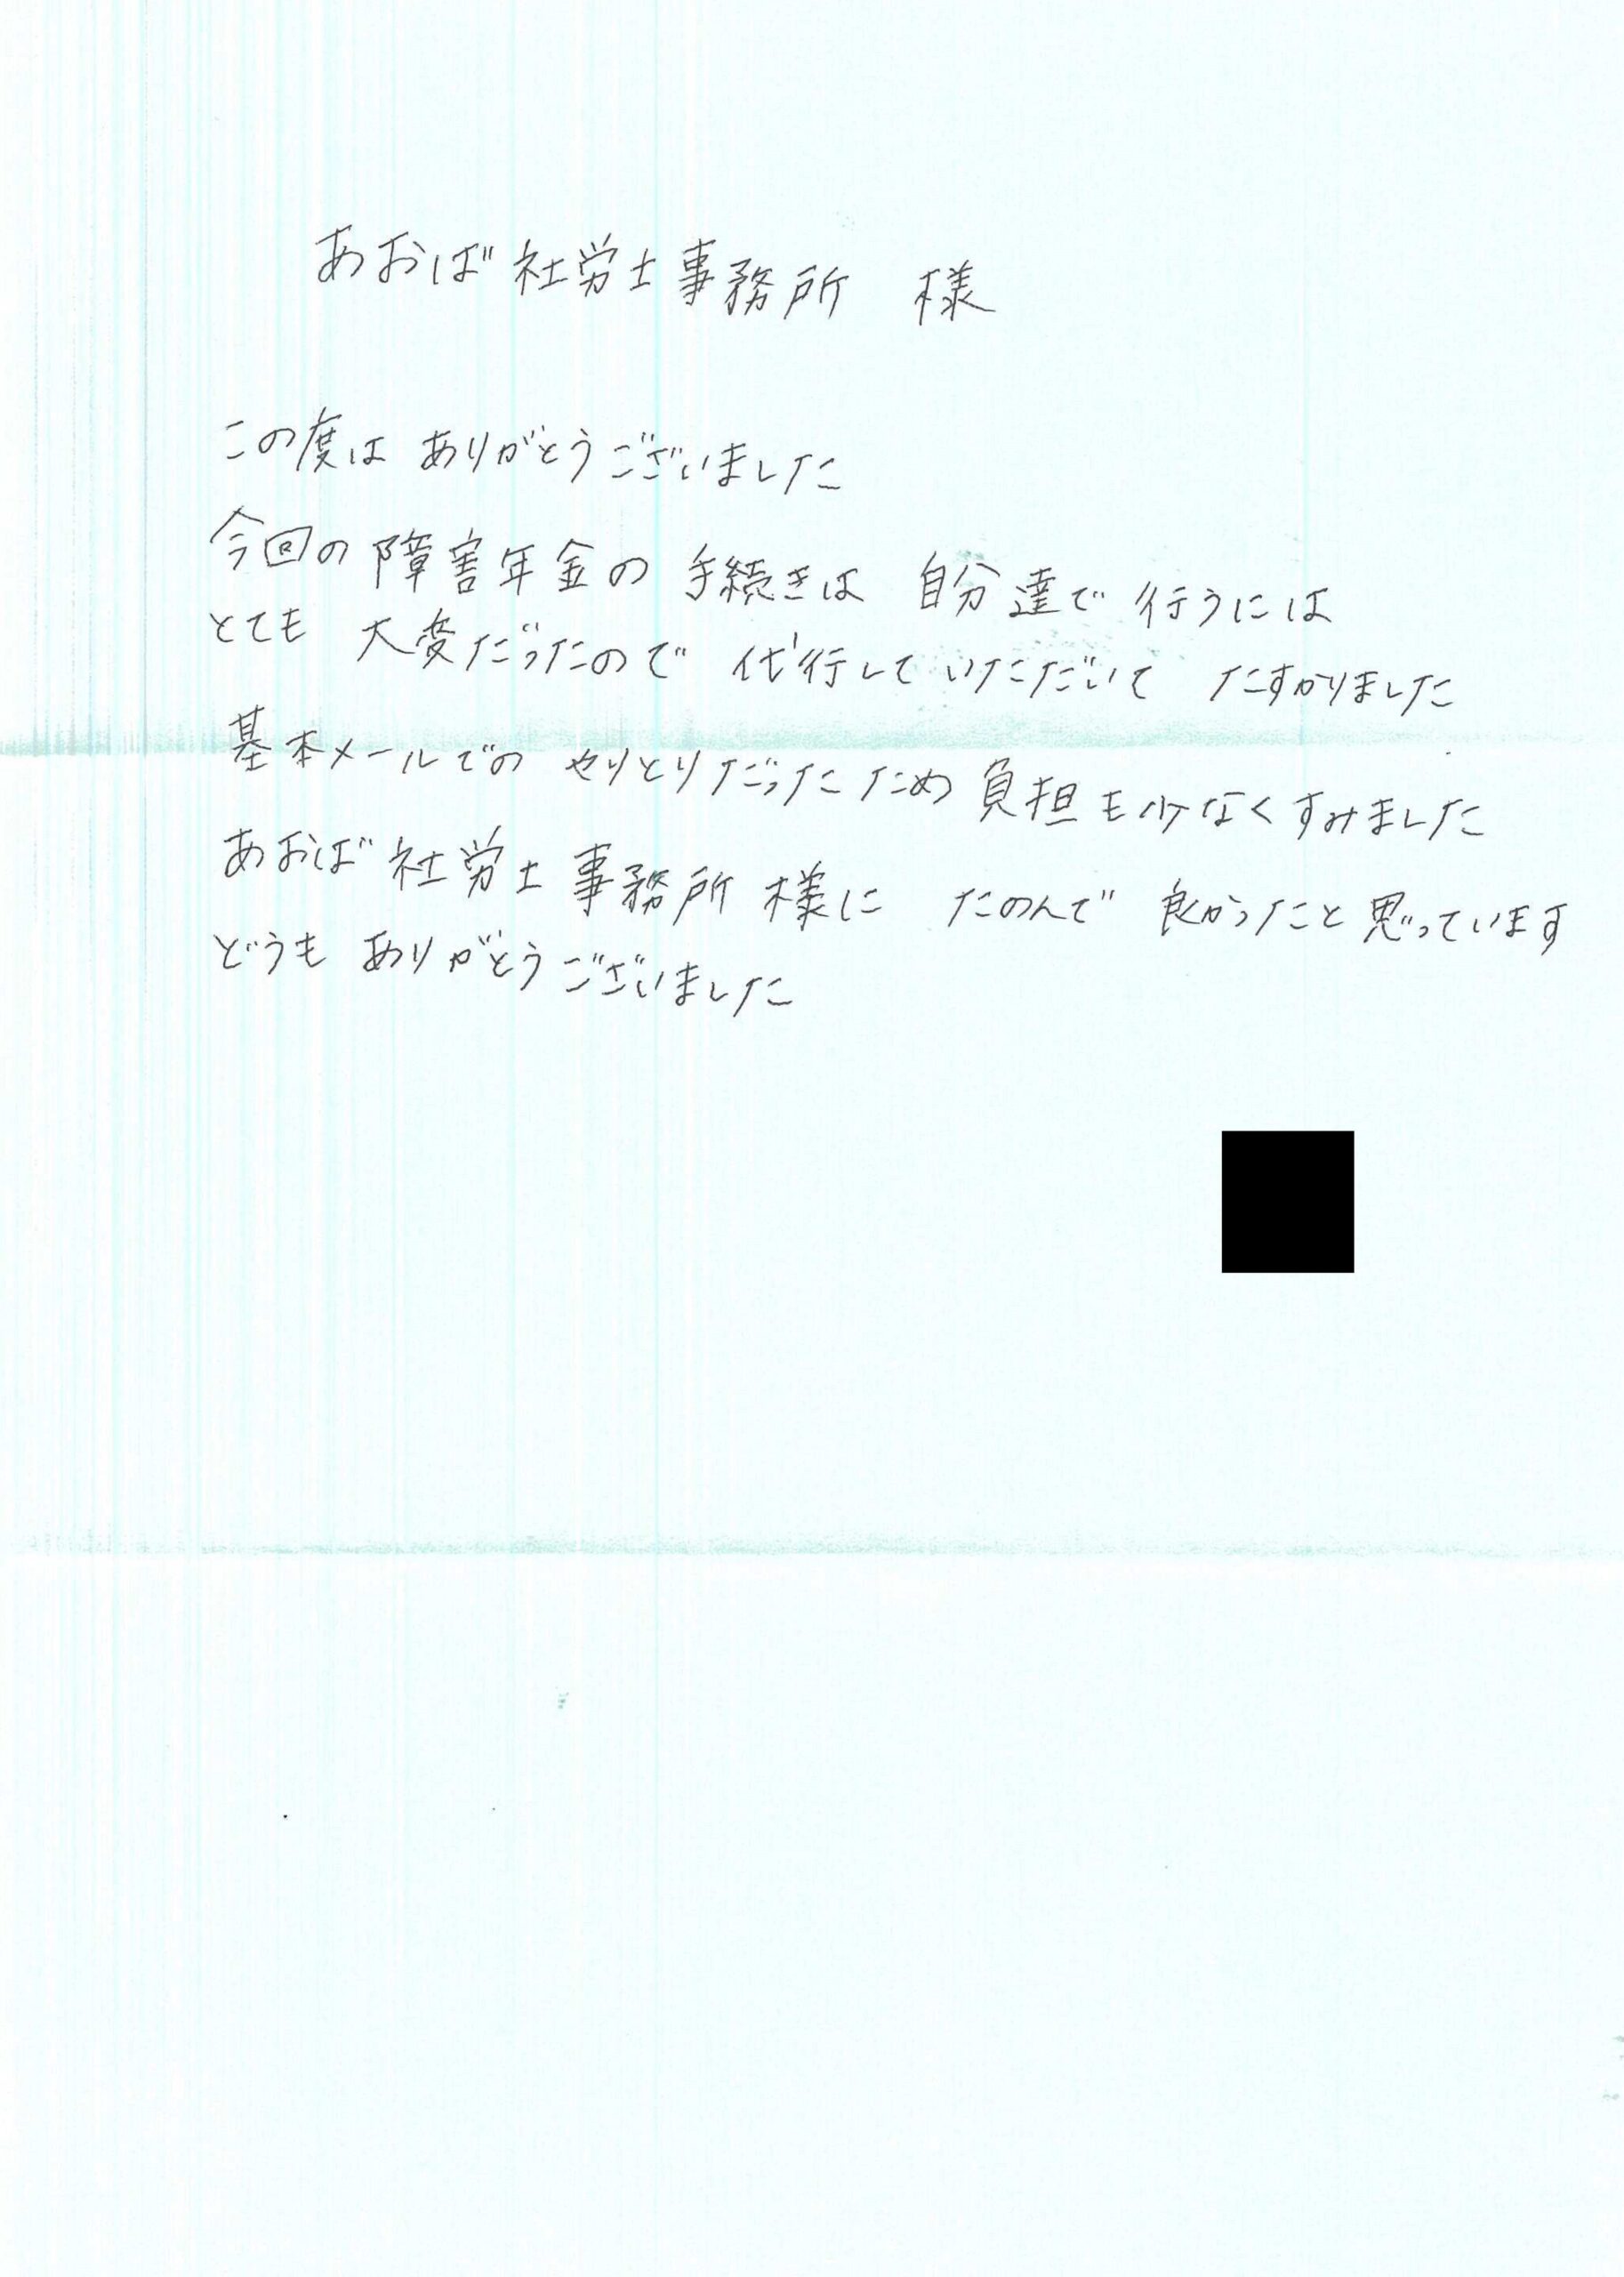 あおば社労士事務所 様
この度は ありがとうございました
今回の 障害年金の 手続きは 自分達で 行うには
とても 大変だったので 代行して いただいて たすかりました
基本メールでの やりとりだったため 負担も少なくすみました
あおば 社労士 事務所 様に たのんで 良かったと 思っています
どうも ありがとうございました